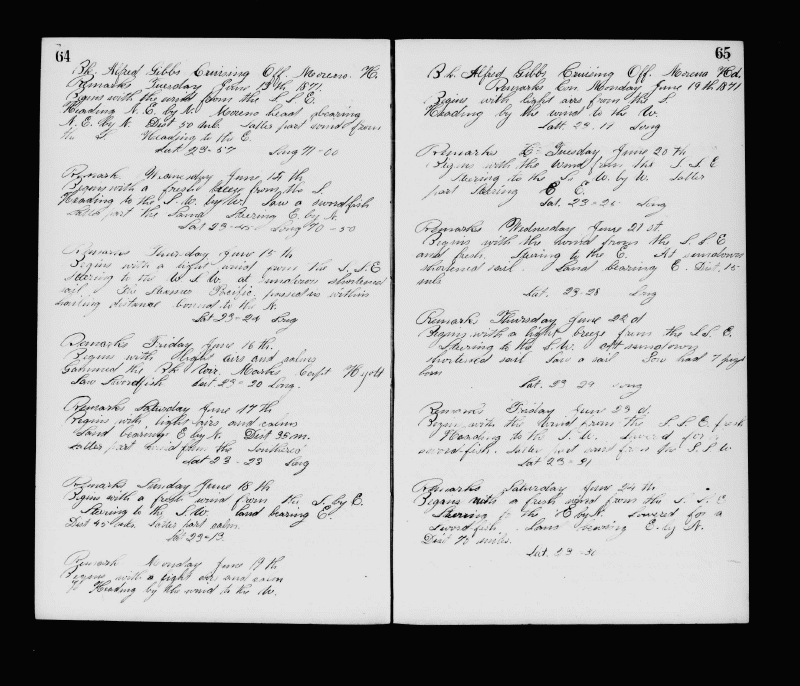 64
Bk. Alfred Gibbs Cruising Off. Moreno. H.
Remarks Tuesday June 13th 1871
Begins with the wind from the S.S.E.
Heading N.E. by N. Moreno head bearing
N.E. by N. Dist 50 mls. Latter part wind from
the S. Heading to the E.
Lat 23-57 Long 71-00
Remark June 14th
Begins with a fresh breeze from the S.
Heading to the S.W. Saw a swordfish
Latter part the Same Steering E. by N.
Lat 23- Long 70-50
Remarks Thursday June 15th
Begins with a light wind from the S.S.E
steering to the W.S.W. at sundown shortened
sail. The Steamer Pacific passed us within
distance bound to the N.
Lat 23-24 Long
Remarks Friday June 16th.
Begins with light airs and calms
Gammed the Bk Marks. Capt
Saw Swordfish Lat 23-20 Long.
Remarks Saturday June 17th
Begins with light airs and calms
Land bearing E by N. Dist 35 m.
Latter part wind from the Southerd
Lat 23-23 Long
Remarks Sunday June 18th
Begins with a fresh wind from the S. by E.
Steering to the S.W. land bearing E.
Dist 45 mls. Latter part calm.
Lat 23-13
Remark Monday June 19th
Begins with a light airs and calm
Heading by the wind to the W.
65
Bk. Alfred Gibbs Cruising Off Moreno Hd.
Remarks On Monday June 19th 1871
Begins with light airs from the S.
Heading by the wind to the W.
Latt 23-11 Long
Remarks Tuesday June 20th
Begins with the wind from the S.S.E
Steering to the W. by W. Latter
part Steering E.
Lat. 23-2 Long
Remarks Wednesday June 21st.
Begins with the wind from the S.S.E
and fresh. Steering to the E. At sundown
shortened sail. Land bearing E. Dist. 15
mls
Lat. 23-28 Long
Remarks Thursday June 22d
Begins with a light breeze from the S.S.E.
Steering to the S.W. att sundown
shortened sail Saw a sail
Lat. 23 29 Long
Remarks Friday June 23d.
Begins with the wind from the S.S.E. fresh
Heading to the S.W. Lowered for a
swordfish. Latter part wind from the S.S.W.
Lat 23-31
Remarks Saturday June 24th.
Begins with a fresh wind from the S.S.E
Steering to the E by N. Lowered for a
swordfish. Land bearing E. by N.
Dist 45 miles.
Lat. 23-31